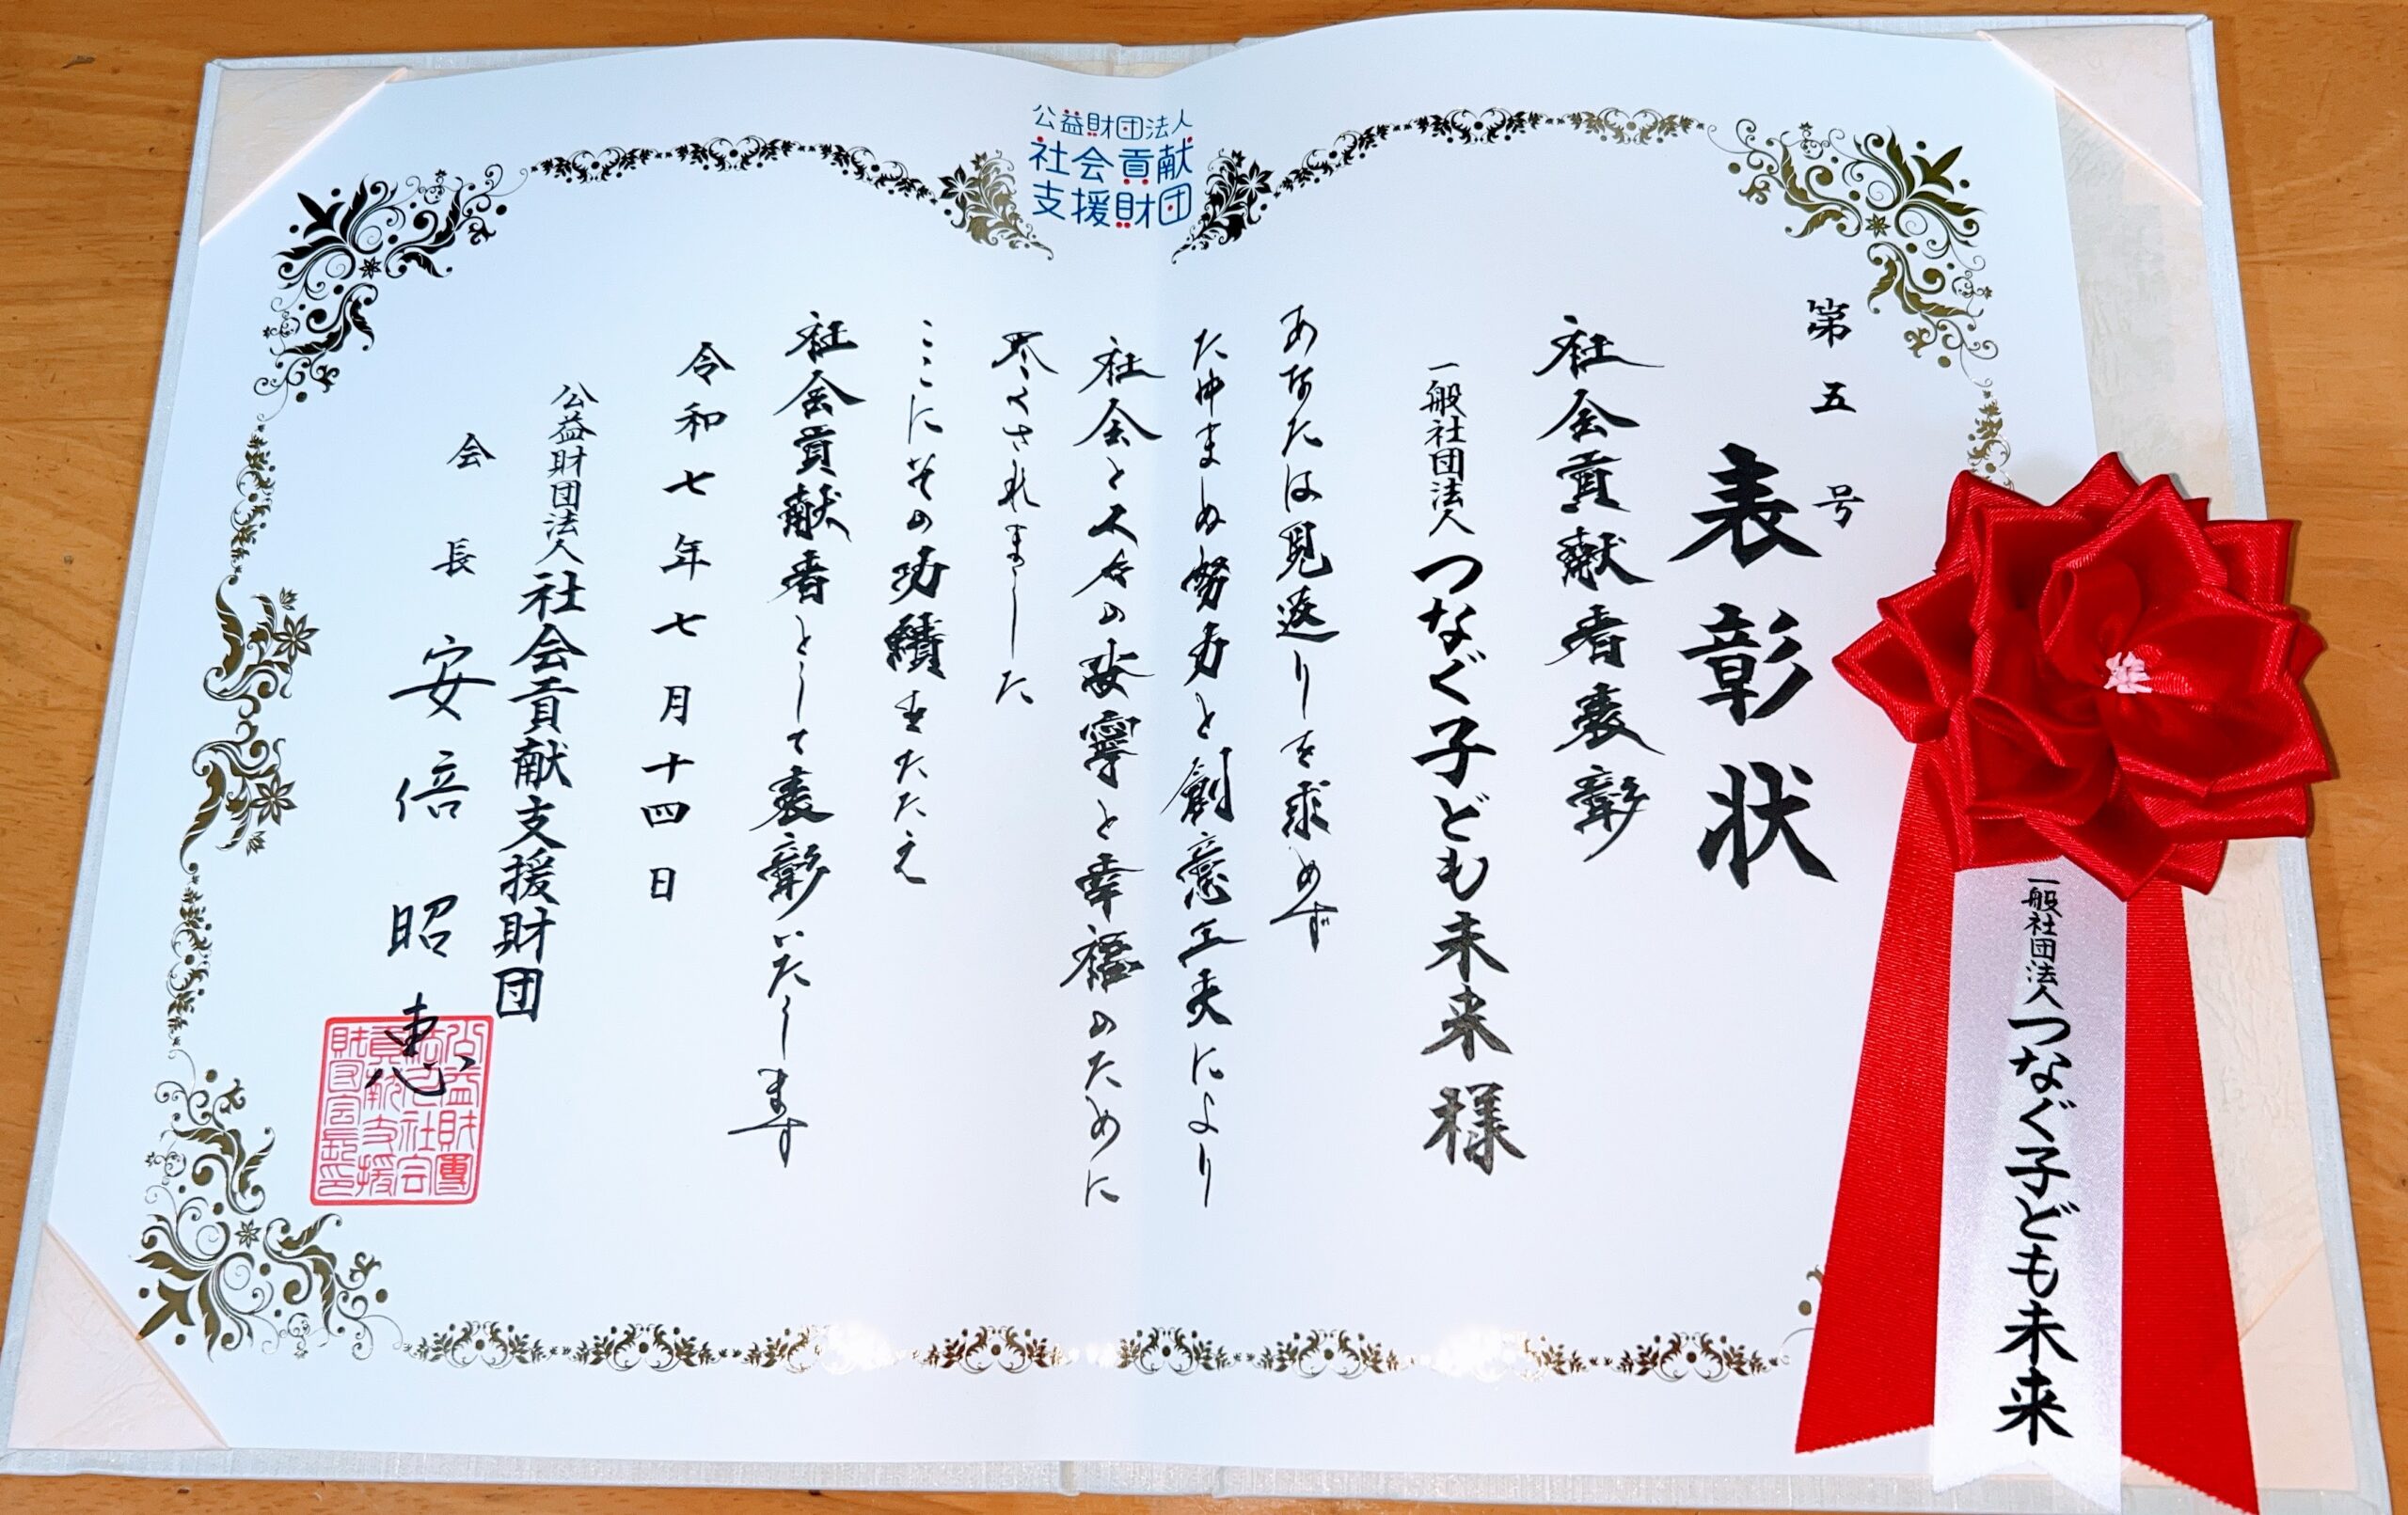 公益財団法人
社会貢献
支援財団
第五号
表彰状
社会貢献者表彰
一般社団法人つなぐ子ども未来様
あなたは見返りを求めず
たゆまぬ努力と創意工夫により
社会と人々の安寧と幸福のために
尽くされました
ここにその功績をたたえ
社会貢献者として表彰いたします
令和七年七月十四日
公益財団法人社会貢献支援財団
会長安倍昭恵
公益財團
法人社会
貢献支援
財団会長印
一般社団法人つなぐ子ども未来